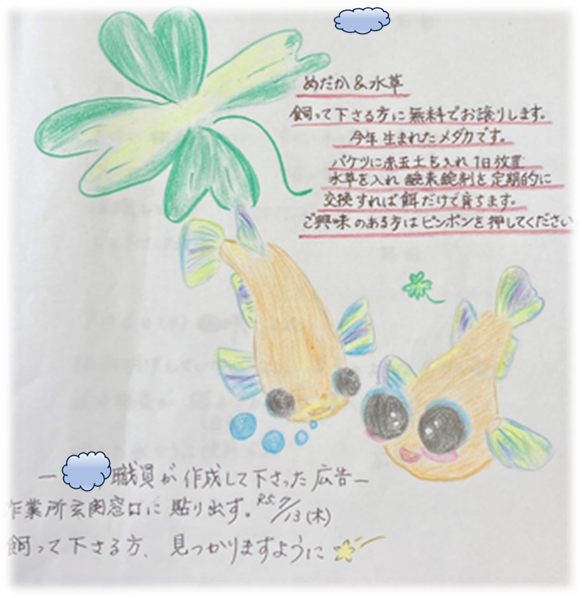 めだか&水草
飼って下さる方に無料でお譲りします。
今年生まれたメダカです。
バケツに赤玉土を入れ1日放置
水草を入れ酸素錠剤を定期的に
交換すれば餌だけで育ちます。
ご興味のある方はピンポンを押してください
ー 職員が作成して下さった広告ー
作業所玄関窓口に貼り出す。R5.7/13(木)
飼って下さる方、見つかりますように